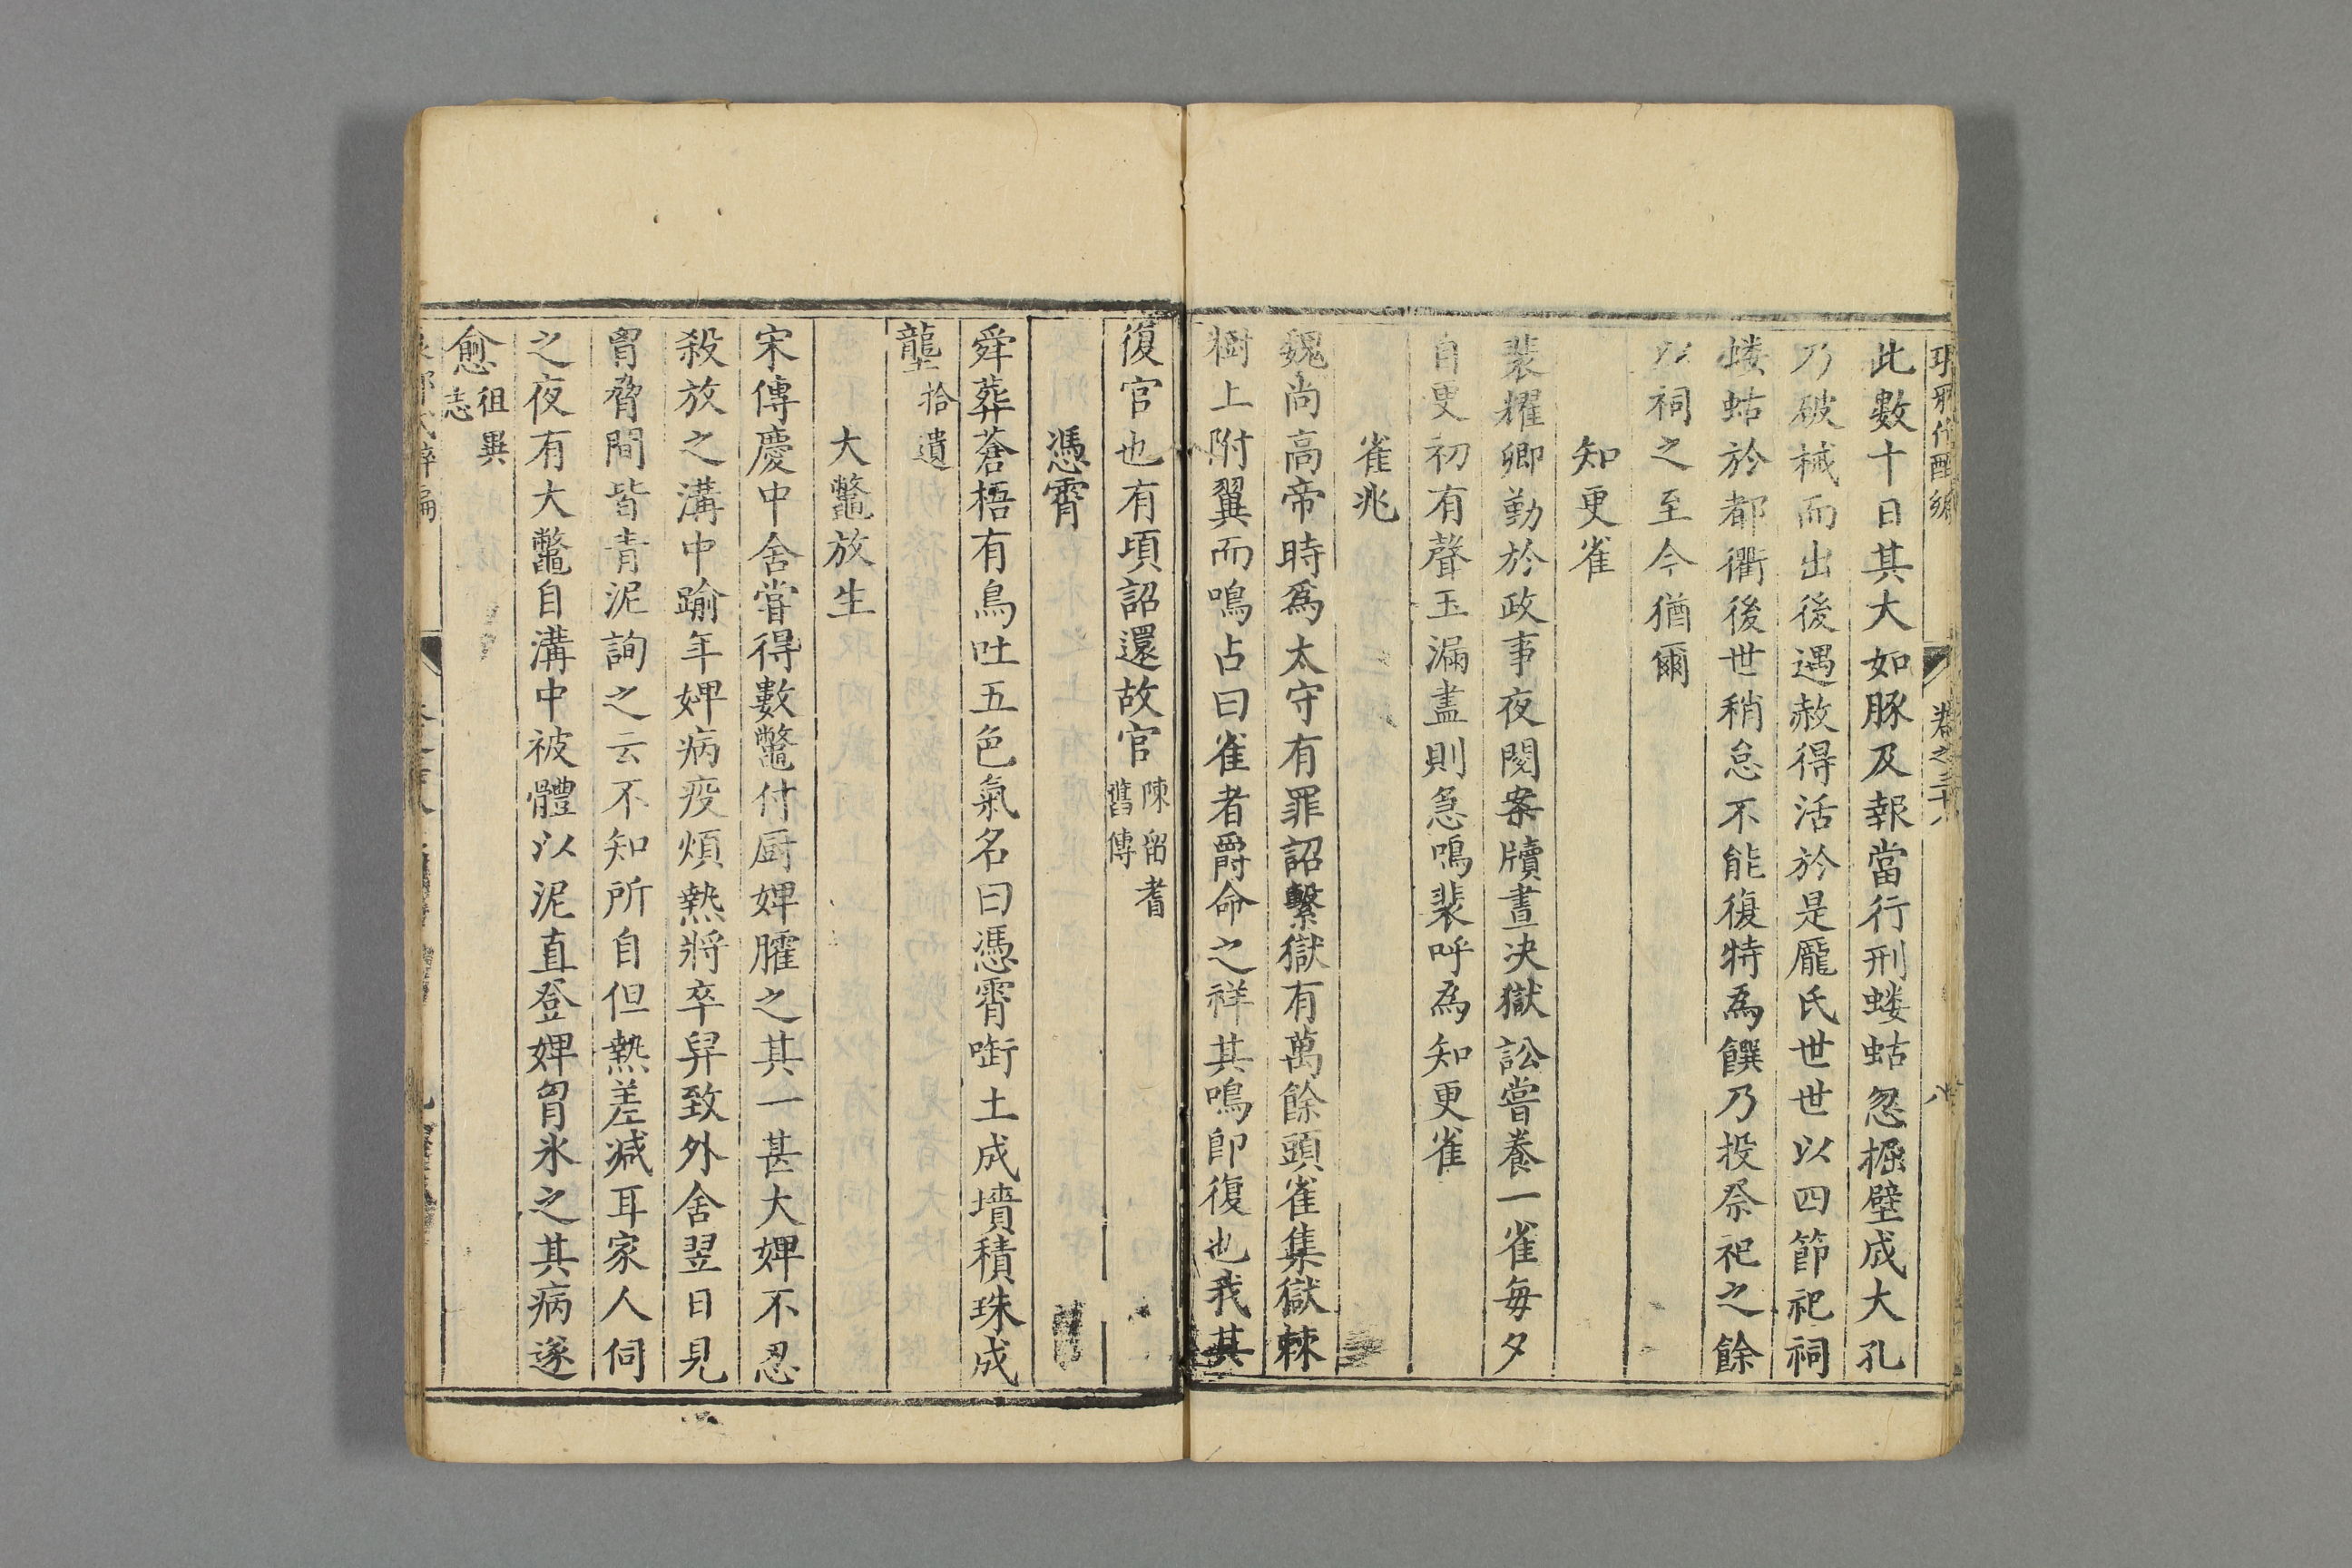 瑯琊代醉編　卷之三十八　八
此數十日其大如豚及報當行刑蝼蛄忽掘壁成大孔
乃破械而出後遇赦得活於是龐氏世世以四節祀祠
蝼蛄於都衢後世稍怠不能復特為饌乃投祭祀之餘
以祠之至今猶爾
知更雀
裴耀卿勤於政事夜閱案牘晝决獄訟嘗養一雀每夕
自更初有聲玉漏盡則急鳴裴呼為知更雀
雀兆
魏尚高帝時爲太守有罪詔繫獄有萬餘頭雀集獄棘
樹上附翼而鳴占曰雀者爵命之祥其鳴卽復也我其
復官也有頃詔還故官陳留耆
舊傳
憑霄
舜葬蒼梧有鳥吐五色氣名曰憑霄啣土成墳積珠成
壟拾
遺
大鼈放生
宋傳慶中舍嘗得數鼈付厨婢臛之其一甚大婢不忍
殺放之溝中踰年婢病疫煩熱將卒舁致外舍翌日見
胷脅間皆青泥詢之云不知所自但熱差减耳家人伺
之夜有大鼈自溝中被體以泥直登婢胷氷之其病遂
愈徂異
志